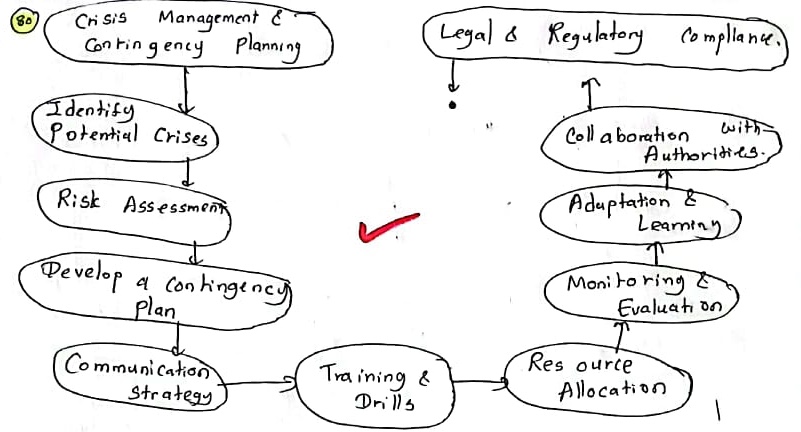 80
Crisis Management &
Contingency Planning
Identify
Potential Crises
Risk Assessment
Develop a Contingency
Plan
Communication
Strategy
Training &
Drills
Resource
Allocation
Monitoring &
Evaluation
Adaptation &
Learning
Collaboration with
Authorities.
Legal & Regulatory Compliance.